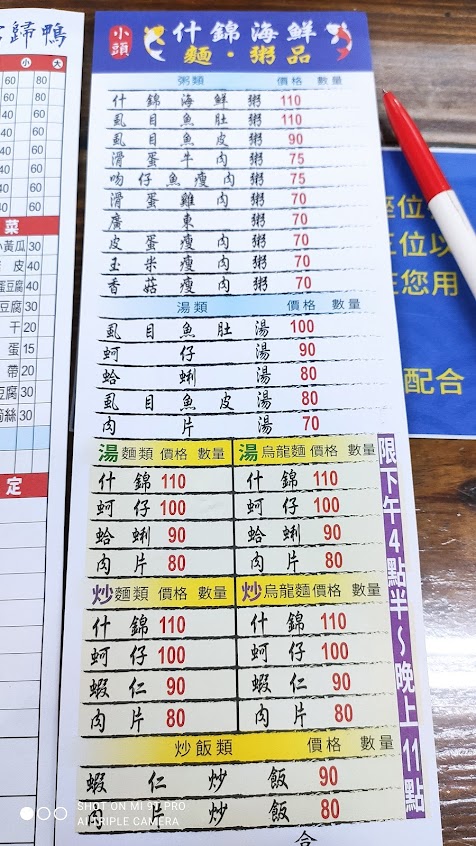 歸鴨
小 大
60 80
60 80
40 60
40 60
40 60
40 60
40 60
菜
小黃瓜 30
皮 40
豆腐 40
豆腐 30
干 20
蛋 15
帶 20
豆腐 30
絲 30
定
小頭
什錦海鮮
麵・粥品
粥類 價格 數量
什錦海鮮粥 110
虱目魚肚粥 110
虱目魚皮粥 90
滑蛋牛肉粥 75
吻仔魚瘦肉粥 75
滑蛋雞肉粥 70
廣東粥 70
皮蛋瘦肉粥 70
玉米瘦肉粥 70
香菇瘦肉粥 70
湯類 價格 數量
虱目魚肚湯 100
蚵仔湯 90
蛤蜊湯 80
虱目魚皮湯 80
肉片湯 70
湯麵類 價格 數量
什錦 110
蚵仔 100
蛤蜊 90
肉片 80
湯烏龍麵 價格 數量
什錦 110
蚵仔 100
蛤蜊 90
肉片 80
炒麵類 價格 數量
什錦 110
蚵仔 100
蝦仁 90
肉片 80
炒烏龍麵 價格 數量
什錦 110
蚵仔 100
蝦仁 90
肉片 80
炒飯類 價格 數量
蝦仁炒飯 90
肉片炒飯 80
限下午4點半～晚上11點
座位
位以
在您用
配合
SHOT ON MI 9T PRO
AI TRIPLE CAMERA